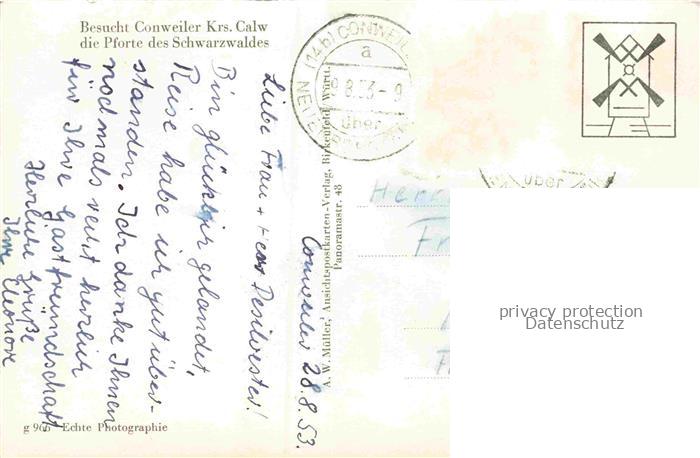 Besucht Conweiler Krs. Calw
die Pforte des Schwarzwaldes
Conweiler 28.8.53.
Liebe Frau + Herr Desilvester!
Bin glücklich gelandet,
Reise habe ich gut über-
standen. Ich danke Ihnen
nochmals recht herzlich
für Ihre Gastfreundschaft
Herzliche Grüße
Ihre Eleonore
g 906 Echte Photographie
A. W. Müller, Ansichtspostkarten-Verlag, Birkenfeld/Württ.
Panoramastr. 48
(14b) CONWEIL
a
8.53-9
über
NEUE
über
Herr
privacy protection
Datenschutz